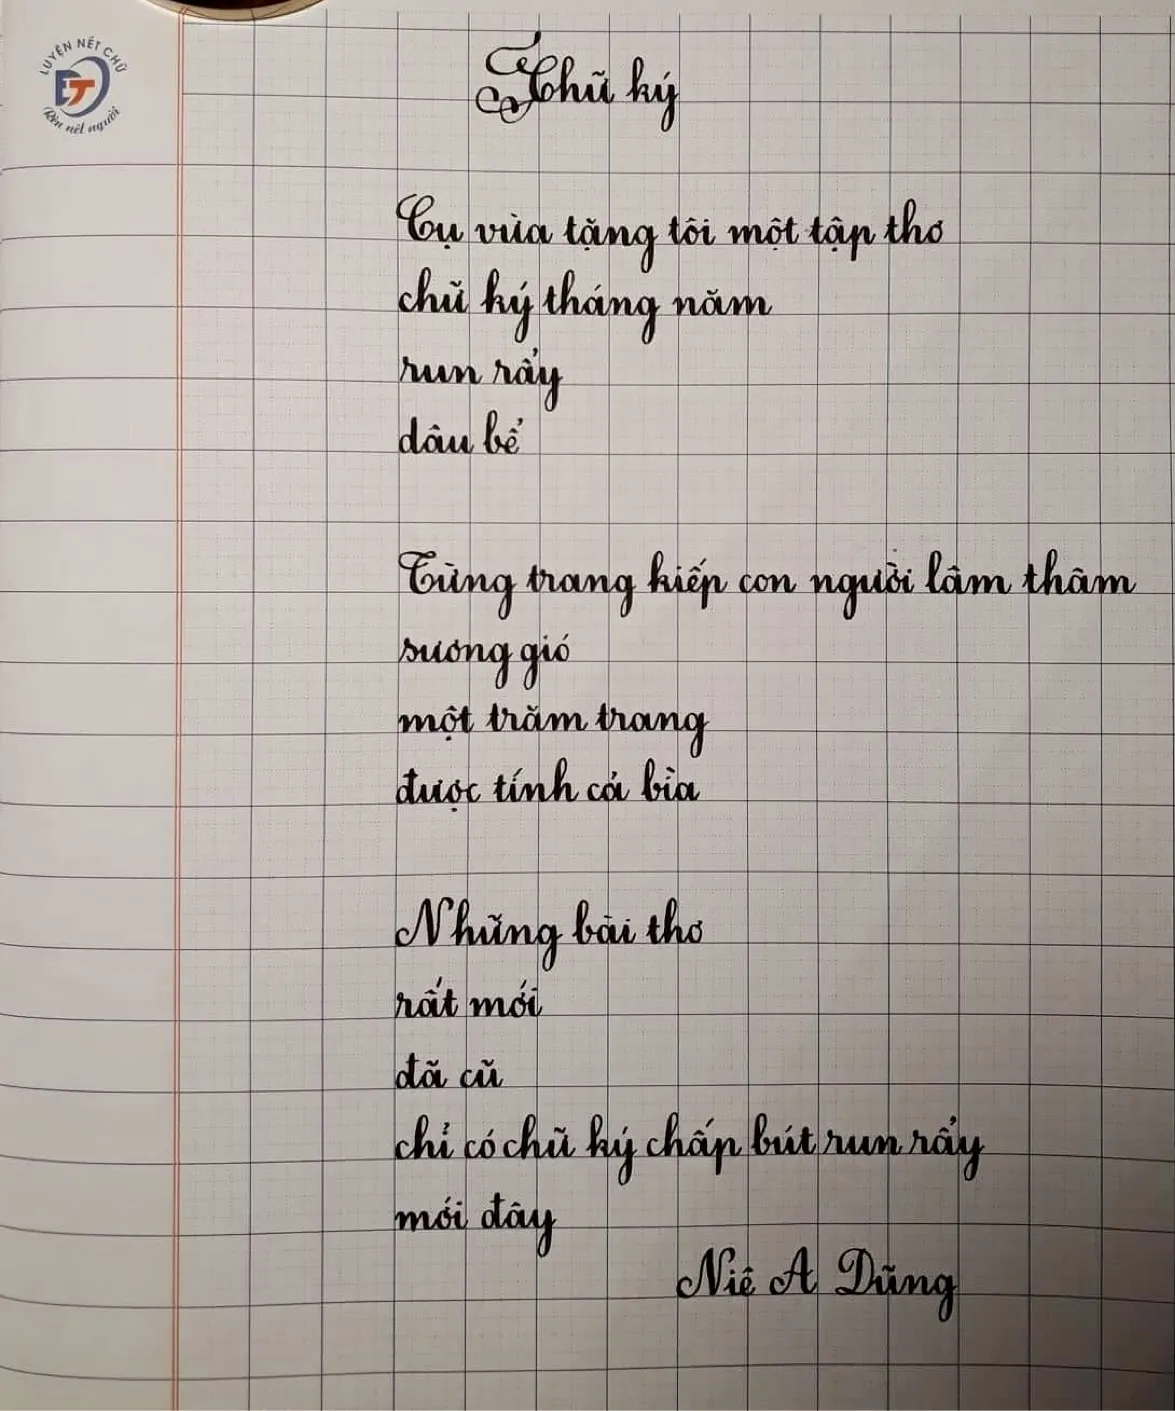 LUYỆN NÉT CHỮ
ĐT
Rèn nết người
Chữ ký
Cụ vừa tặng tôi một tập thơ
chữ ký tháng năm
run rẩy
dâu bể
Từng trang kiếp con người lâm thâm
sương gió
một trăm trang
được tính cả bìa
Những bài thơ
rất mới
đã cũ
chỉ có chữ ký chấp bút run rẩy
mới đây
Niê A Dũng